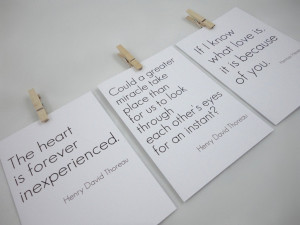 The heart
is forever
inexperienced.
Henry David Thoreau
Could a greater
miracle take
place than
for us to look
through
each other's eyes
for an instant?
Henry David Thoreau
If I know
what love is,
it is because
of you.